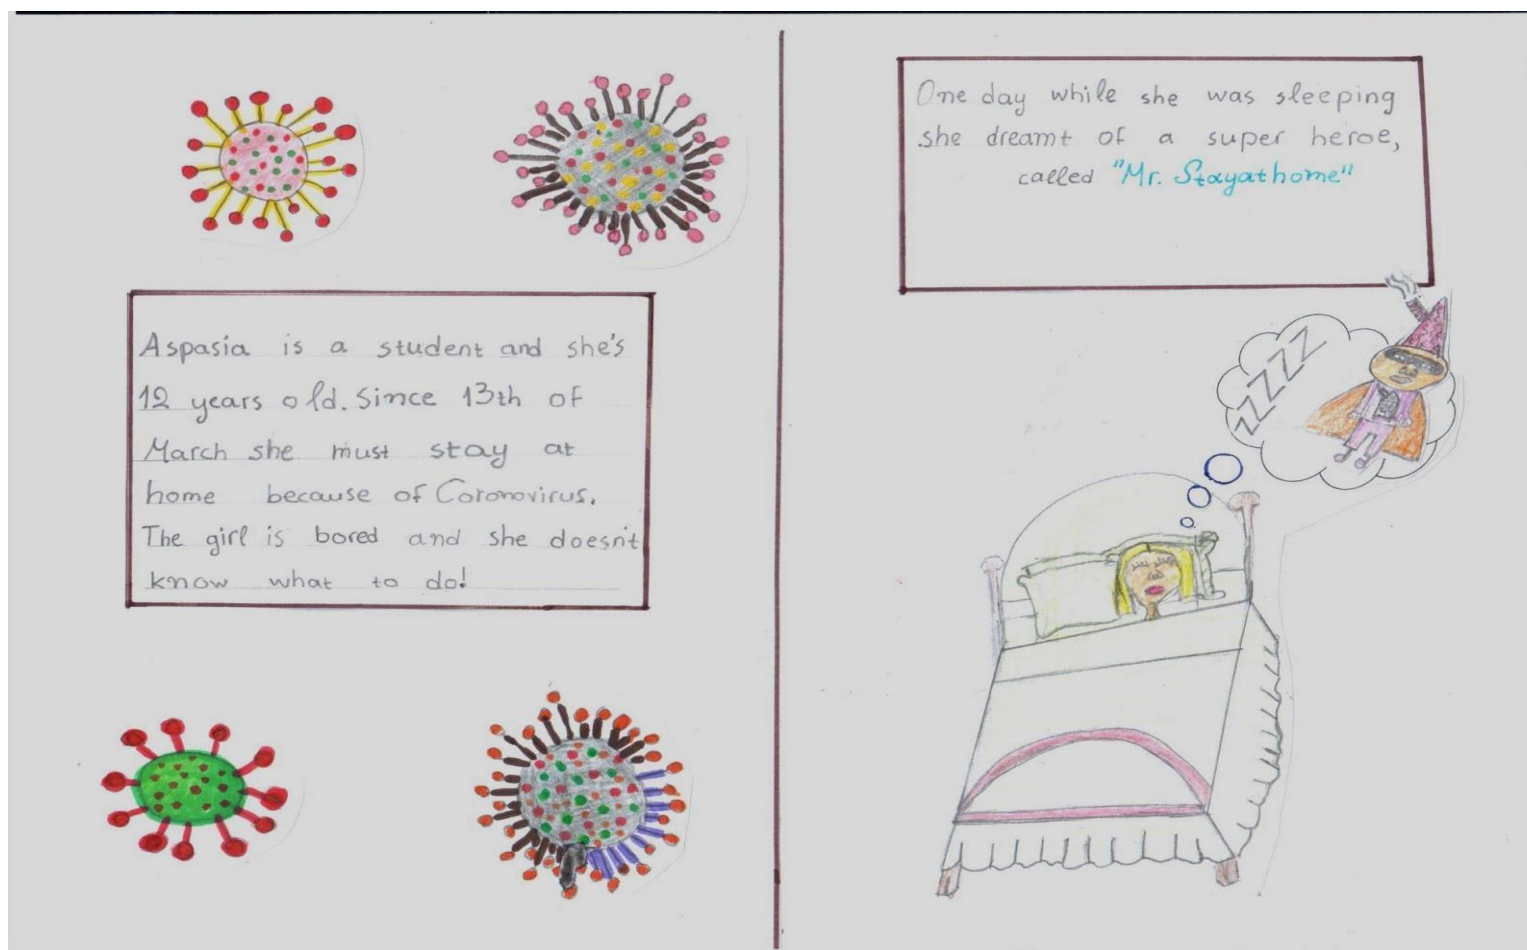 Aspasia is a student and she's
12 years old. Since 13th of
March she must stay at
home because of Coronovirus.
The girl is bored and she doesn't
know what to do!
One day while she was sleeping
she dreamt of a super heroe,
called "Mr. Stayathome"
zZZZZ